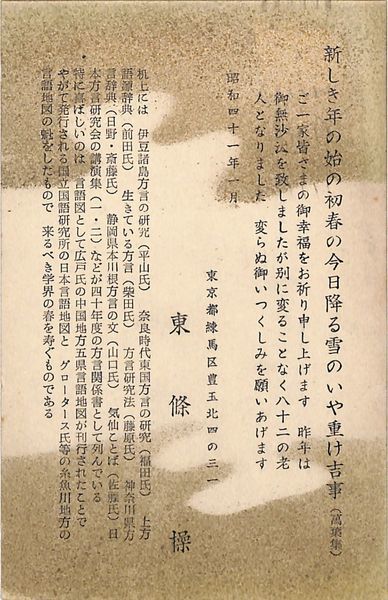 新しき年の始の初春の今日降る雪のいや重け吉事（萬葉集）
ご一家皆さまの御幸福をお祈り申し上げます　昨年は
御無沙汰を致しましたが別に変ることなく八十二の老
人となりました　変らぬ御いつくしみを願いあげます
昭和四十一年一月
東京都練馬区豊玉北四の三一
東條　操
机上には　伊豆諸島方言の研究（平山氏）　奈良時代東国方言の研究（福田氏）　上方
語源辞典（前田氏）　生きている方言（柴田氏）　方言研究法（藤原氏）　神奈川県方
言辞典（日野・斎藤氏）　静岡県本川根方言の文（山口氏）　気仙ことば（佐藤氏）日
本方言研究会の講演集（一・二）などが四十年度の方言関係書として列んでいる
特に喜ばしいのは　言語図として広戸氏の中国地方五県言語地図が刊行されたことで
やがて発行される国立国語研究所の日本言語地図と　グロータース氏等の糸魚川地方の
言語地図の魁をしたもので　来るべき学界の春を寿ぐものである